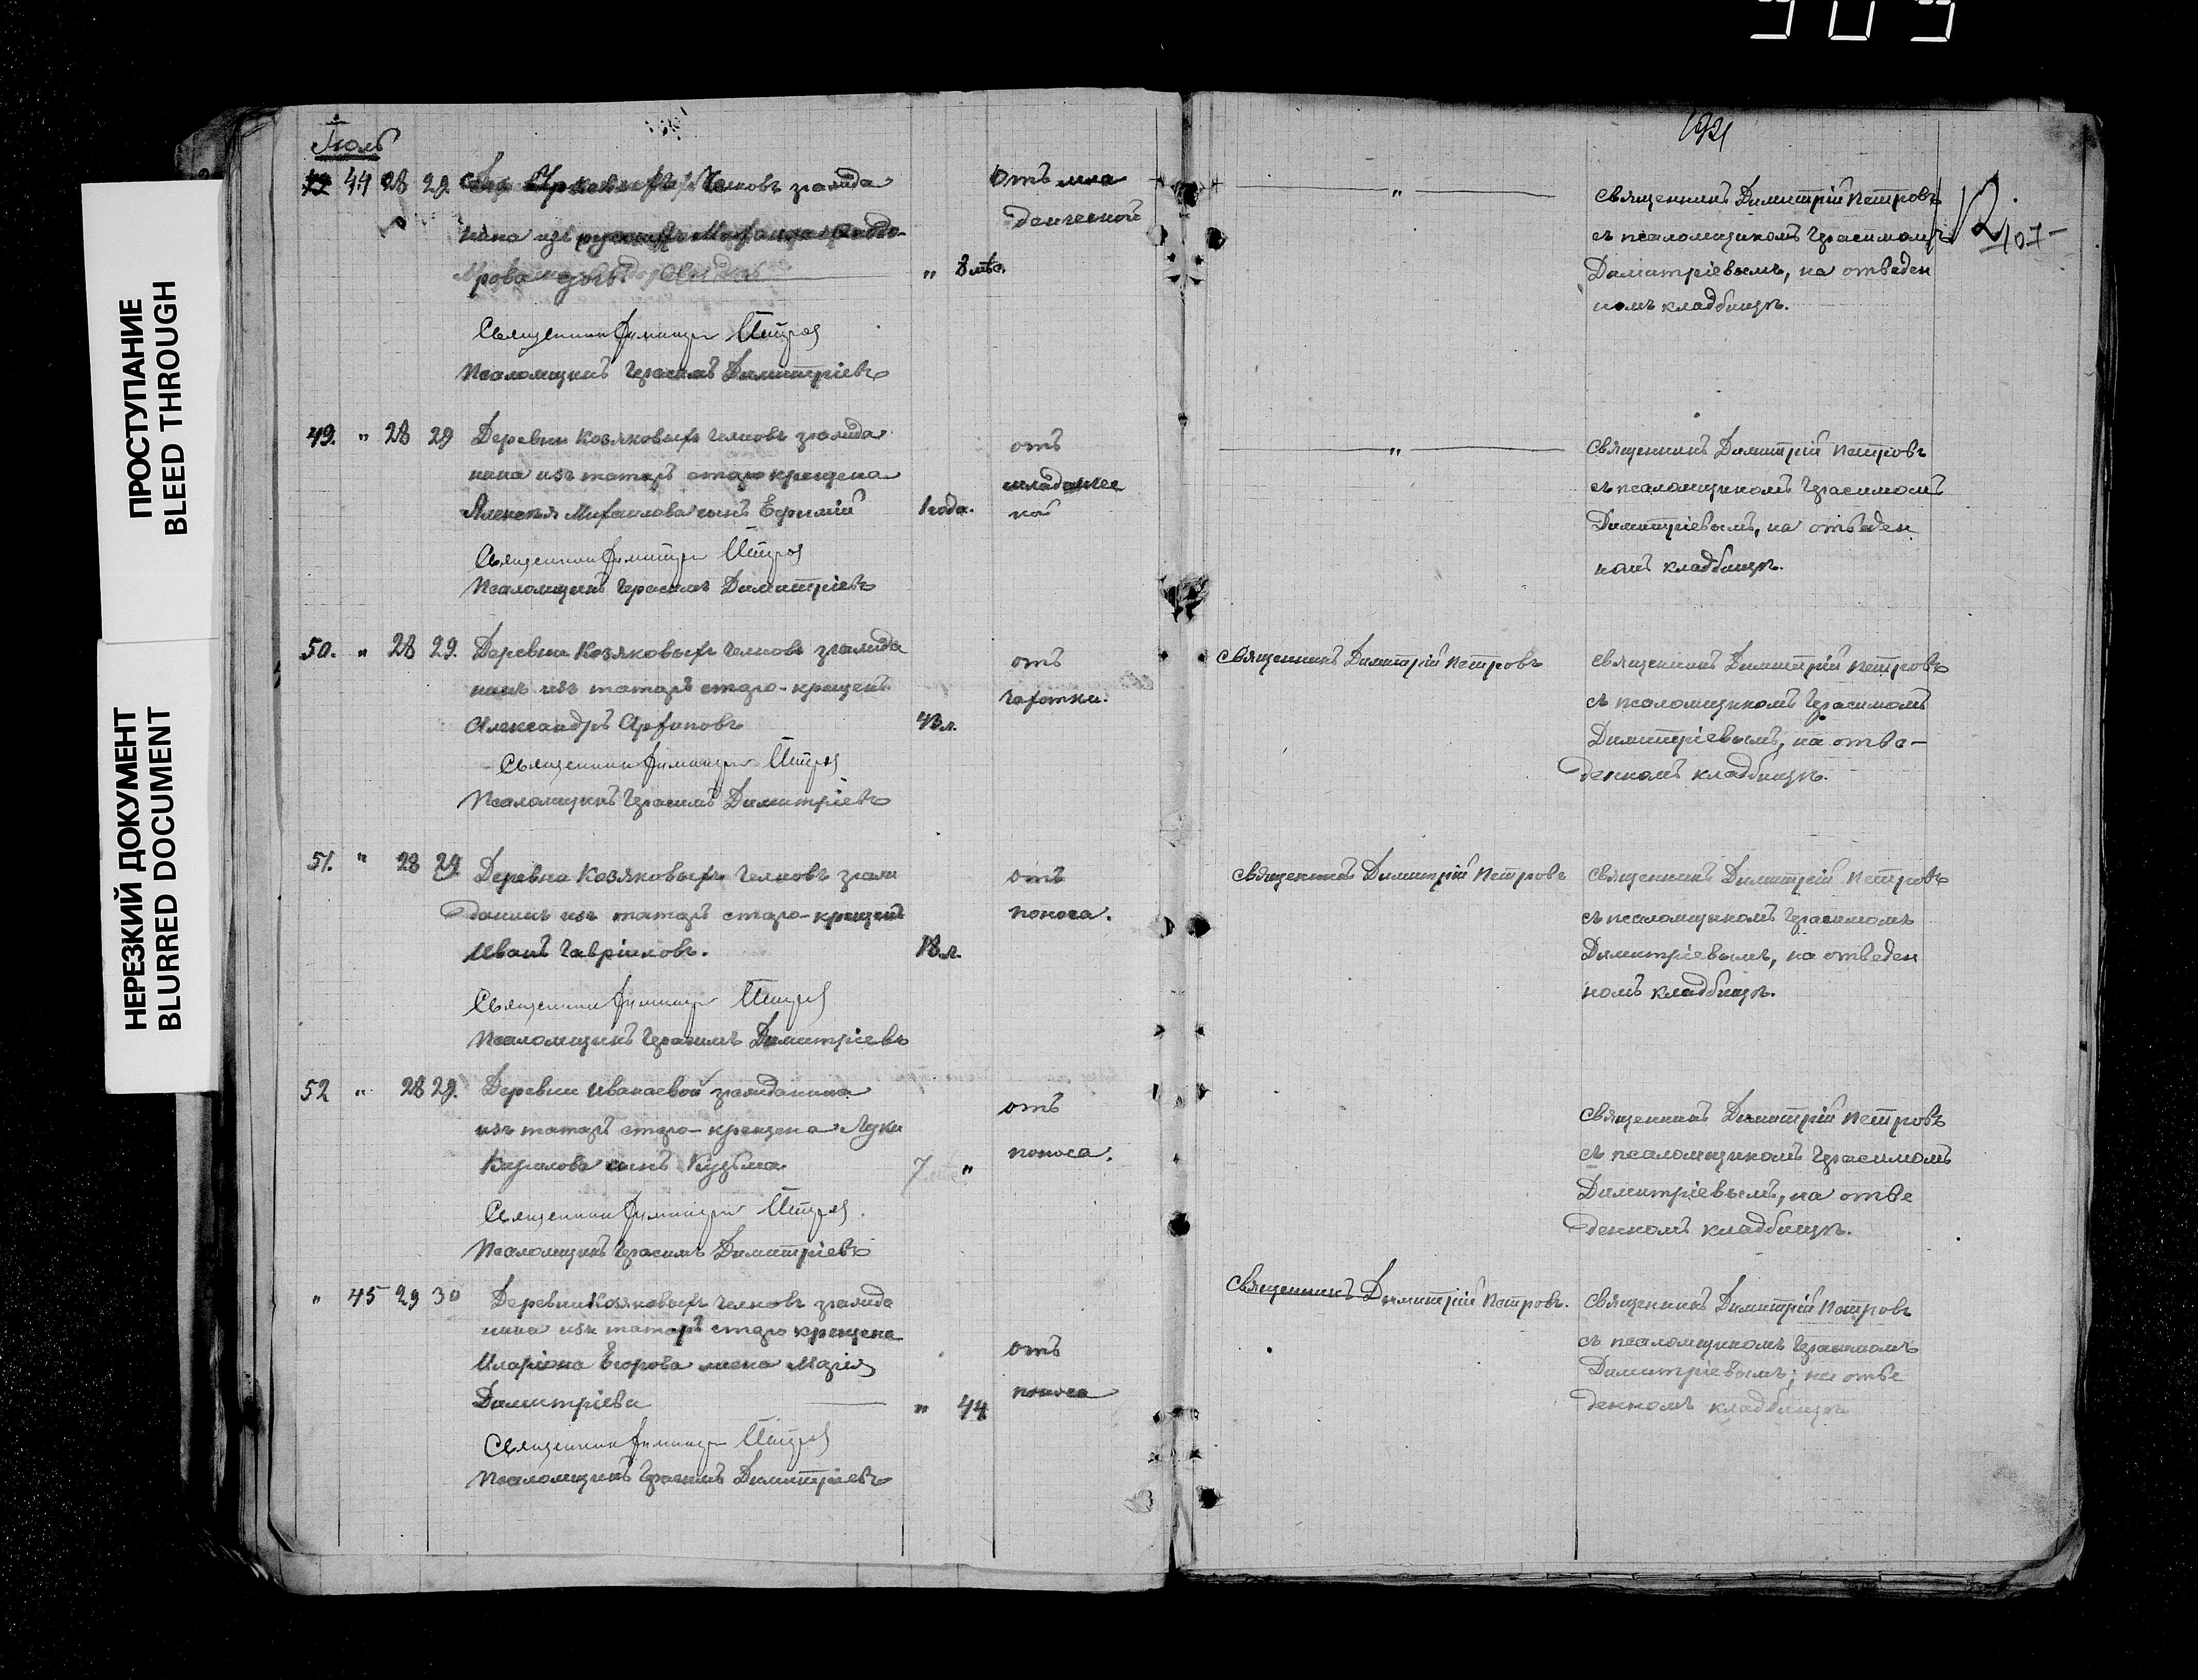 909
ПРОСТУПАНИЕ
BLEED THROUGH
НЕРЕЗКИЙ ДОКУМЕНТ
BLURRED DOCUMENT
Іюль
44 28 29 Челновъ гражда
нина изъ
рова дочь
" 8 мѣс.
Отъ мла
денческой
Священникъ Димитрій Петровъ
Псаломщикъ Герасимъ Димитріевъ
49. " 28 29 Деревни Козяковыхъ Челновъ гражда
нина изъ татаръ старокрещена
Алексѣя Михаилова сынъ Ефимій
1 года.
отъ
младенчес
кой
Священникъ Димитрій Петровъ
Псаломщикъ Герасимъ Димитріевъ
50. " 28 29. Деревни Козяковыхъ Челновъ гражда
нинъ изъ татаръ старо-крещенъ
Александръ Архиповъ
43 л.
отъ
чахотки.
Священникъ Димитрій Петровъ
Псаломщикъ Герасимъ Димитріевъ
51. " 28 29. Деревни Козяковыхъ Челновъ граж
данинъ изъ татаръ старо-крещенъ
Иванъ Гавріиловъ.
18 л.
отъ
поноса.
Священникъ Димитрій Петровъ
Псаломщикъ Герасимъ Димитріевъ
52 " 28 29. Деревни Иванаевой гражданина
изъ татаръ старо-крещена Луки
Кирилова сынъ Кузьма
7 мѣс. "
отъ
поноса.
Священникъ Димитрій Петровъ
Псаломщикъ Герасимъ Димитріевъ
" 45 29 30 Деревни Козяковыхъ Челновъ гражда
нина изъ татаръ старо крещена
Иларіона Егорова жена Марія
Димитріева
" 44
отъ
поноса
Священникъ Димитрій Петровъ
Псаломщикъ Герасимъ Димитріевъ
"
Священникъ Димитрій Петровъ
съ псаломщикомъ Герасимомъ
Димитріевымъ, на отведен
номъ кладбищѣ.
"
Священникъ Димитрій Петровъ
съ псаломщикомъ Герасимомъ
Димитріевымъ, на отведен
номъ кладбищѣ.
Священникъ Димитрій Петровъ
Священникъ Димитрій Петровъ
съ псаломщикомъ Герасимомъ
Димитріевымъ, на отве-
денномъ кладбищѣ.
Священникъ Димитрій Петровъ
Священникъ Димитрій Петровъ
съ псаломщикомъ Герасимомъ
Димитріевымъ, на отведен
номъ кладбищѣ.
Священникъ Димитрій Петровъ
съ псаломщикомъ Герасимомъ
Димитріевымъ, на отве
денномъ кладбищѣ.
Священникъ Димитрій Петровъ.
Священникъ Димитрій Петровъ
съ псаломщикомъ Герасимомъ
Димитріевымъ, на отве
денномъ кладбищѣ